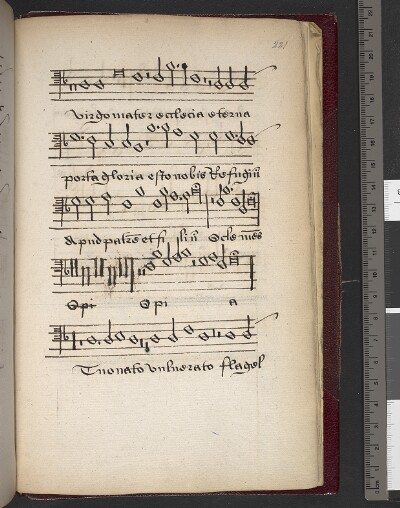 221
Virgo mater ecclecia eterna
porta gloria esto nobis Refugiu̅
Apud patre̅ et fi liu̅ O cle me̅s
O pi O pi a
Tuo nato vulnerato flagel